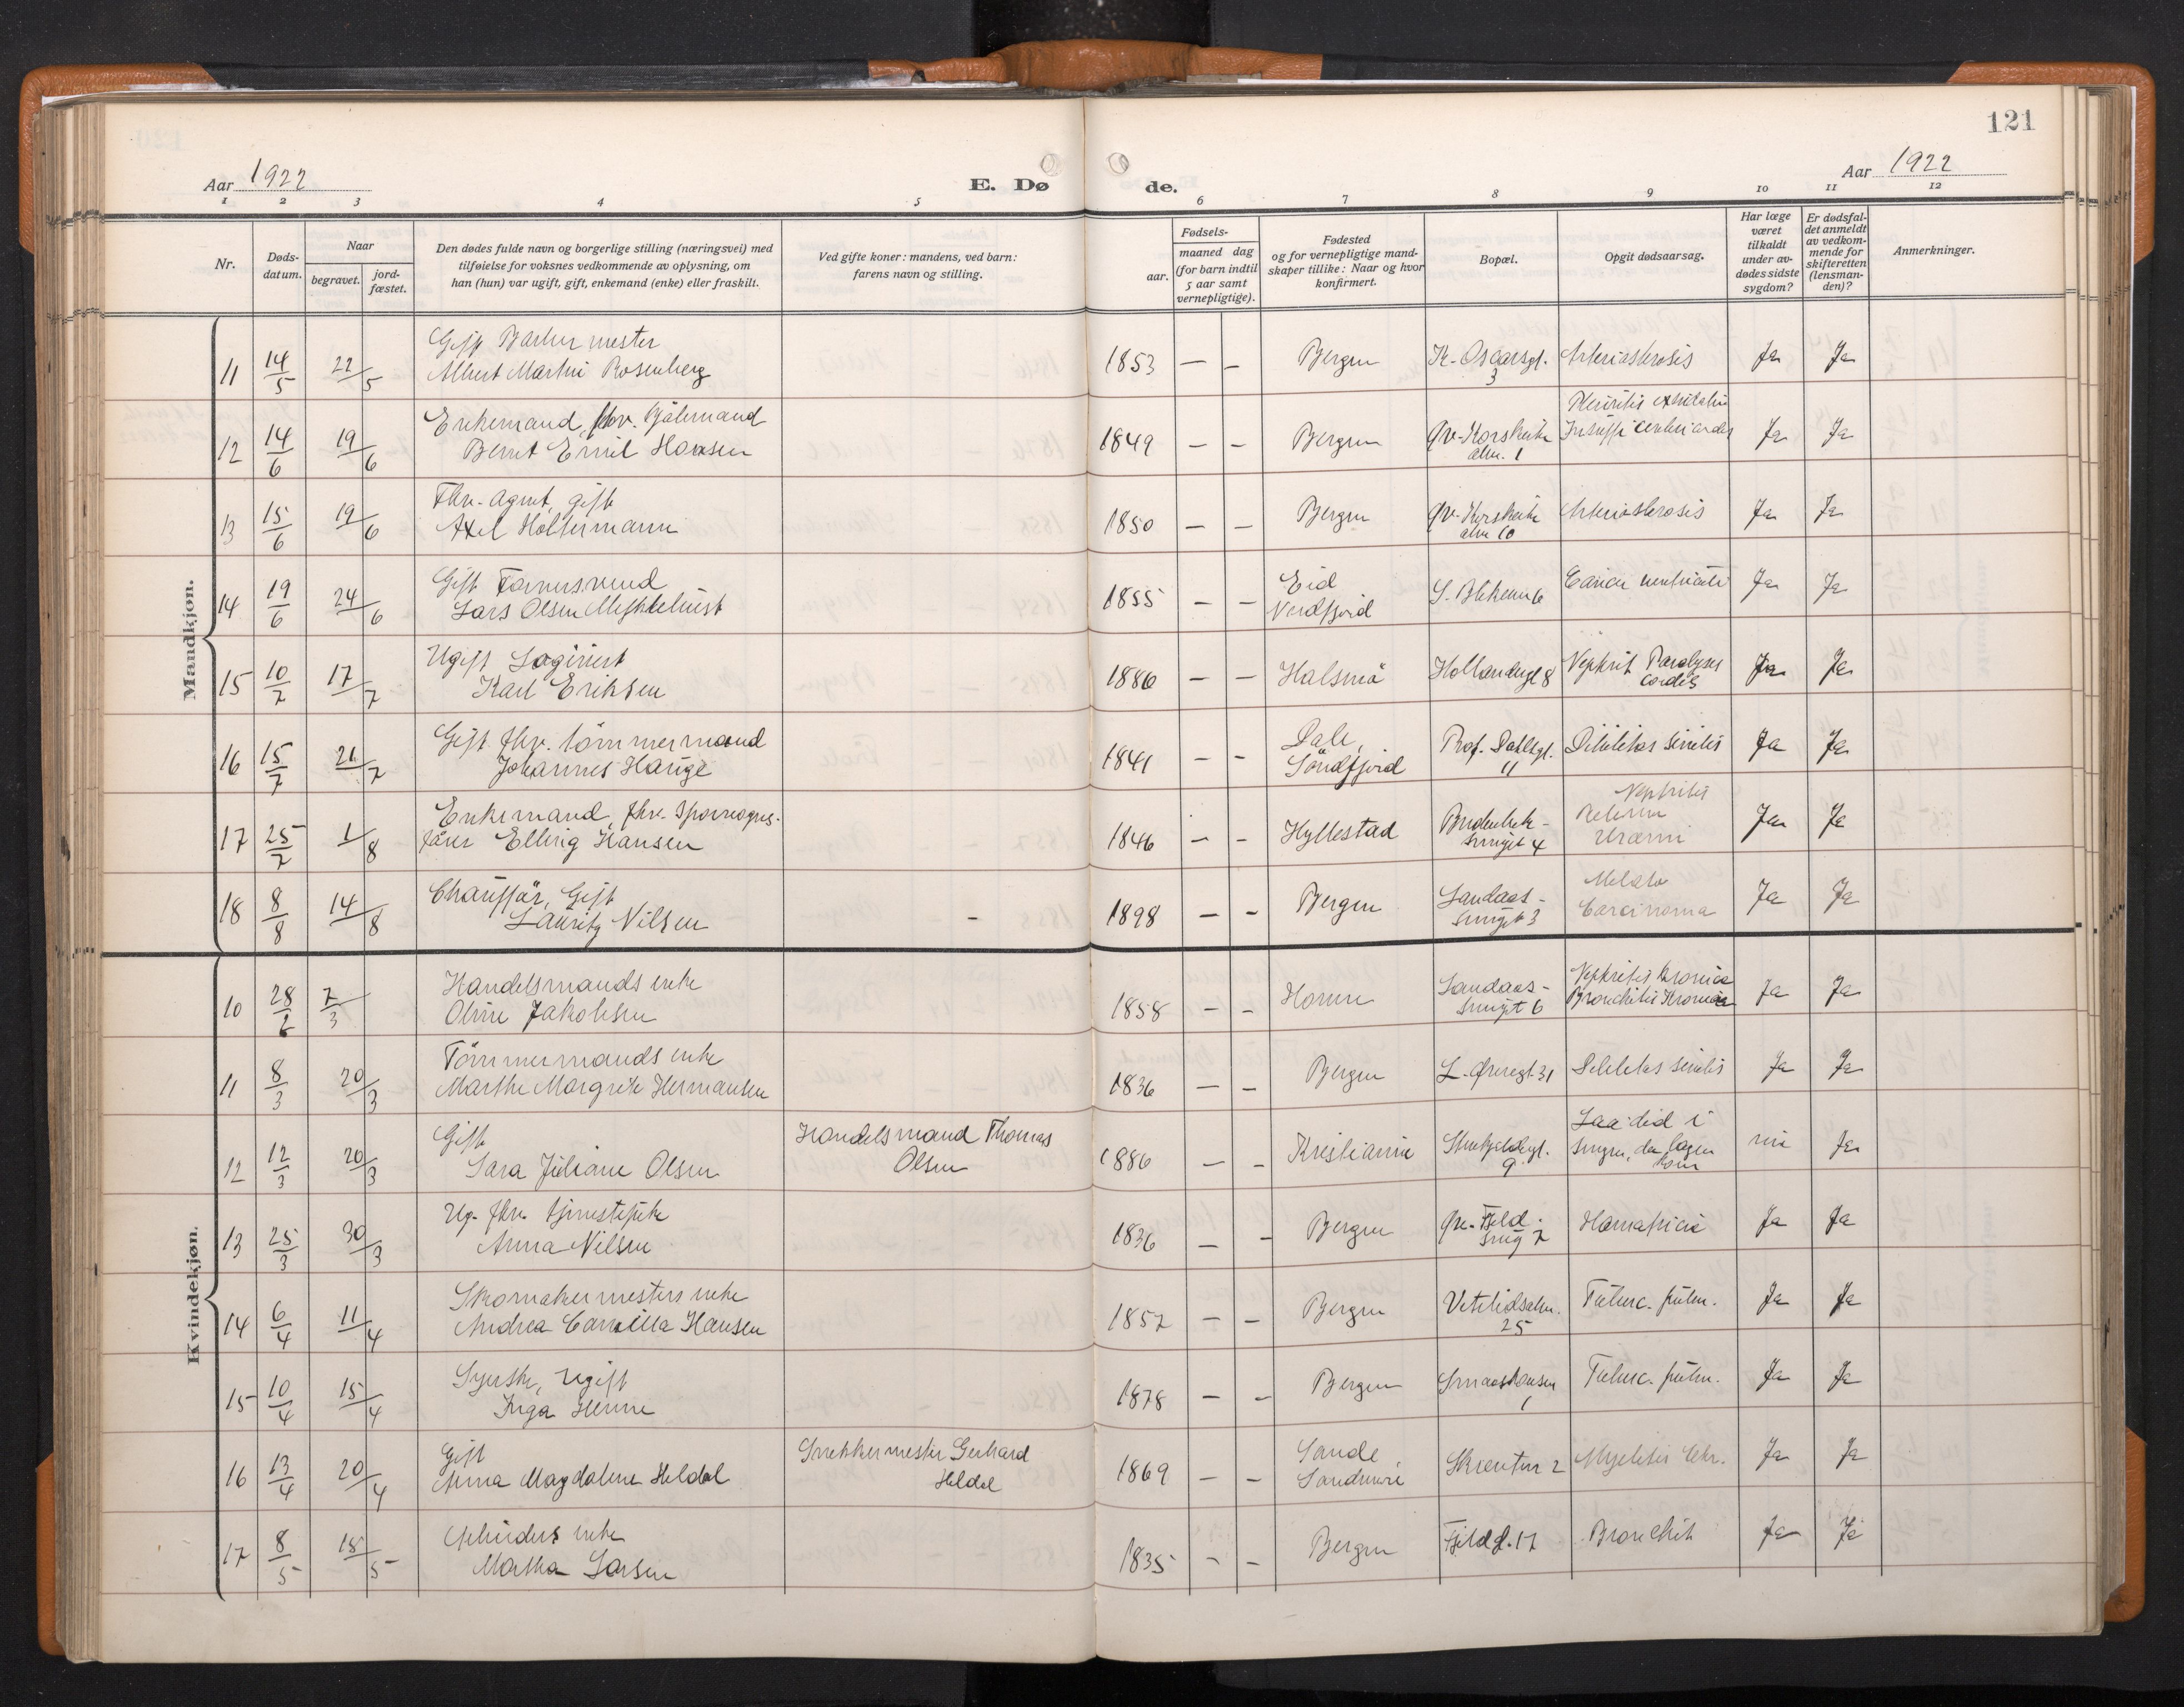 121
Aar 1922
E. Dø de.
Aar 1922
1 2 3 4 5 6 7 8 9 10 11 12
Nr.
Døds-
datum.
Naar
begravet.
jord-
fæstet.
Den dødes fulde navn og borgerlige stilling (næringsvei) med
tilføielse for voksnes vedkommende av oplysning, om
han (hun) var ugift, gift, enkemand (enke) eller fraskilt.
Ved gifte koner: mandens, ved barn:
farens navn og stilling.
Fødsels-
aar.
maaned dag
(for barn indtil
5 aar samt
vernepligtige).
Fødested
og for vernepligtige mand-
skaper tillike: Naar og hvor
konfirmert.
Bopæl.
Opgit dødsaarsag.
Har læge
været
tilkaldt
under av-
dødes sidste
sygdom?
Er dødsfal-
det anmeldt
av vedkom-
mende for
skifteretten
(lensman-
den)?
Anmerkninger.
Mandkjøn.
11 14/5 22/5 Gift Barbermester
Albert Martin Rosenberg
1853 — — Bergen K. Oscarsgt.
3
Ja Ja
12 14/6 19/6 Enkemand, fhv.
Bernt Emil Hansen
1849 — — Bergen Øv. Korskirke
alm. 1
Ja Ja
13 15/6 19/6 Fhv. Agent, gift
Axel Holtermann
1850 — — Bergen Øv. Korskirke
alm 10
Ja Ja
14 19/6 24/6 Gift
Lars Olsen Myklebust
1855 — — Eid
Nordfjord
Cancer ventriculi Ja Ja
15 10/7 17/7 Ugift Logirert
Karl Eriksen
1886 — — Halsnö Hollendergt 8 Nephrit Paralysis
cordis
Ja Ja
16 15/7 21/7 Gift fhv. tömmermand
Johannes Hauge
1841 — — Dale,
Söndfjord
Prof. Dahlsgt.
11
Debilitas senilis Ja Ja
17 25/7 1/8 Enkemand, fhv. Sporvogns-
förer Elling Hansen
1846 — — Hyllestad
smuget 4
Nephritis
Uræmi
Ja Ja
18 8/8 14/8 Chaufför, Gift
Lauritz Nilsen
1898 — — Bergen Landaas-
smuget 3
Carcinoma
Ja Ja
Kvindekjøn.
10 28/2 7/3 Handelsmands enke
Oline Jakobsen
1858 — — Landaas-
smuget 6
Nephritis kronica
Bronchitis kronica
Ja Ja
11 8/3 20/3 Tömmermands enke
Marthe Margrete Hermansen
1836 — — Bergen L. Øvregt. 31 Debilitas senilis Ja Ja
12 12/3 20/3 Gift
Sara Juliane Olsen
Handelsmand Thomas
Olsen
1886 — — Kristiania
9
Laa död i
sengen, da lægen
kom
nei Ja
13 25/3 30/3 Ug. fhv. tjenestepike
Anna Nilsen
1836 — — Bergen Øv. Fjeld-
smug 2
Ja Ja
14 6/4 11/4 Skomakermesters enke
Andrea Camilla Hansen
1857 — — Bergen Vetrlidsalm.
25
Tuberc. pulm. Ja Ja
15 10/4 15/4 Syerske, ugift
Inga Henne
1878 — — Bergen
1
Tuberc. pulm. Ja Ja
16 13/4 20/4 Gift
Anna Magdalene Heldal
Snekkermester Gerhard
Heldal
1869 — — Sande
Söndmöre
Skrenten 2 Myelitis chr. Ja Ja
17 8/5 15/5 enke
Martha Larsen
1835 — — Bergen Fjeldg. 17 Bronchit Ja Ja